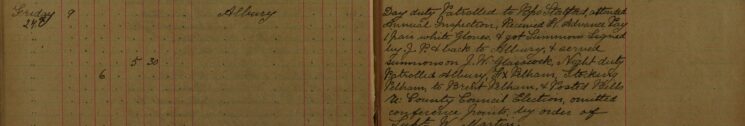 Friday 9 Albury Day duty Patrolled to Bps Stortford, attended
24th Annual Inspection, Received Advance Pay
1 pair white Gloves & got Summons Signed
by J. P. & back to Albury, & served
5 30 Summons on J. W. Glasscock, Night duty
6 Patrolled Albury, Pelham, Stocking
Pelham, to Brent Pelham, & Posted Bills
County Council Election, omitted
conference points, by order of
Martin